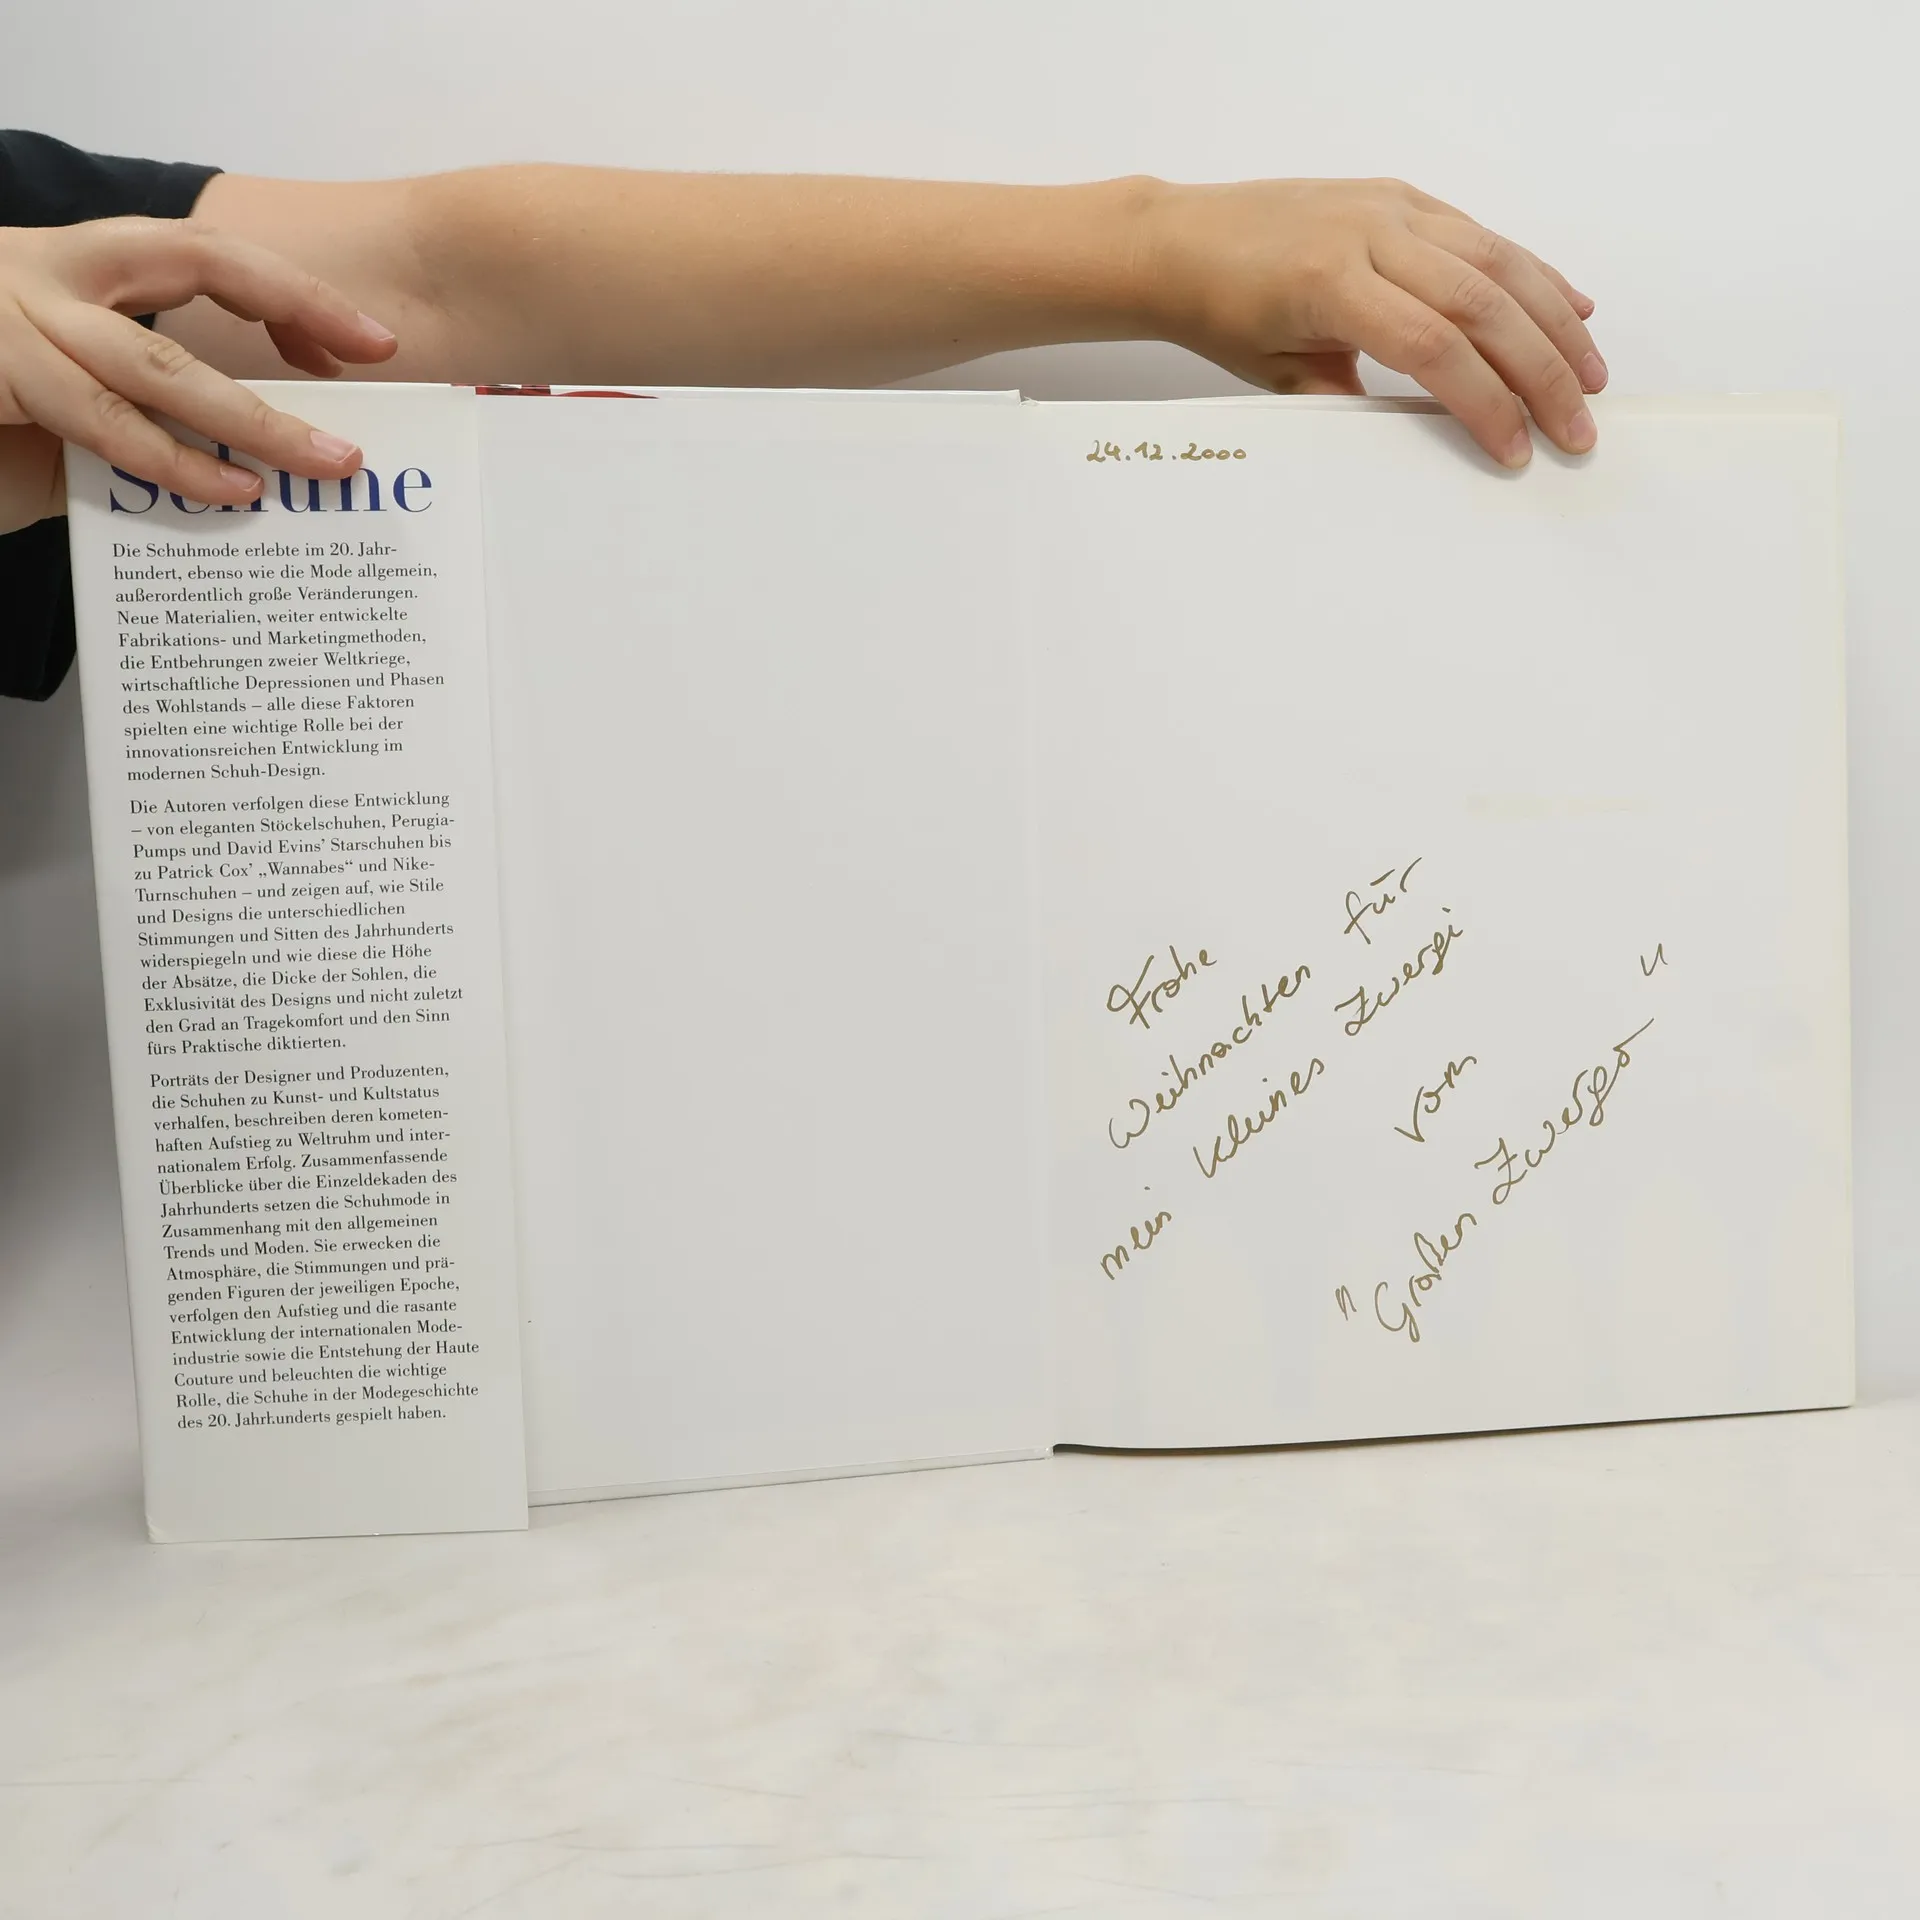 Schuhe
Die Schuhmode erlebte im 20. Jahr-
hundert, ebenso wie die Mode allgemein,
außerordentlich große Veränderungen.
Neue Materialien, weiter entwickelte
Fabrikations- und Marketingmethoden,
die Entbehrungen zweier Weltkriege,
wirtschaftliche Depressionen und Phasen
des Wohlstands – alle diese Faktoren
spielten eine wichtige Rolle bei der
innovationsreichen Entwicklung im
modernen Schuh-Design.
Die Autoren verfolgen diese Entwicklung
– von eleganten Stöckelschuhen, Perugia-
Pumps und David Evins' Starschuhen bis
zu Patrick Cox' „Wannabes“ und Nike-
Turnschuhen – und zeigen auf, wie Stile
und Designs die unterschiedlichen
Stimmungen und Sitten des Jahrhunderts
widerspiegeln und wie diese die Höhe
der Absätze, die Dicke der Sohlen, die
Exklusivität des Designs und nicht zuletzt
den Grad an Tragekomfort und den Sinn
fürs Praktische diktierten.
Porträts der Designer und Produzenten,
die Schuhen zu Kunst- und Kultstatus
verhalfen, beschreiben deren kometen-
haften Aufstieg zu Weltruhm und inter-
nationalem Erfolg. Zusammenfassende
Überblicke über die Einzeldekaden des
Jahrhunderts setzen die Schuhmode in
Zusammenhang mit den allgemeinen
Trends und Moden. Sie erwecken die
Atmosphäre, die Stimmungen und prä-
genden Figuren der jeweiligen Epoche,
verfolgen den Aufstieg und die rasante
Entwicklung der internationalen Mode-
industrie sowie die Entstehung der Haute
Couture und beleuchten die wichtige
Rolle, die Schuhe in der Modegeschichte
des 20. Jahrhunderts gespielt haben.
24.12.2000
Frohe
Weihnachten für
mein kleines Zwergi
vom
"Großen Zwergo"